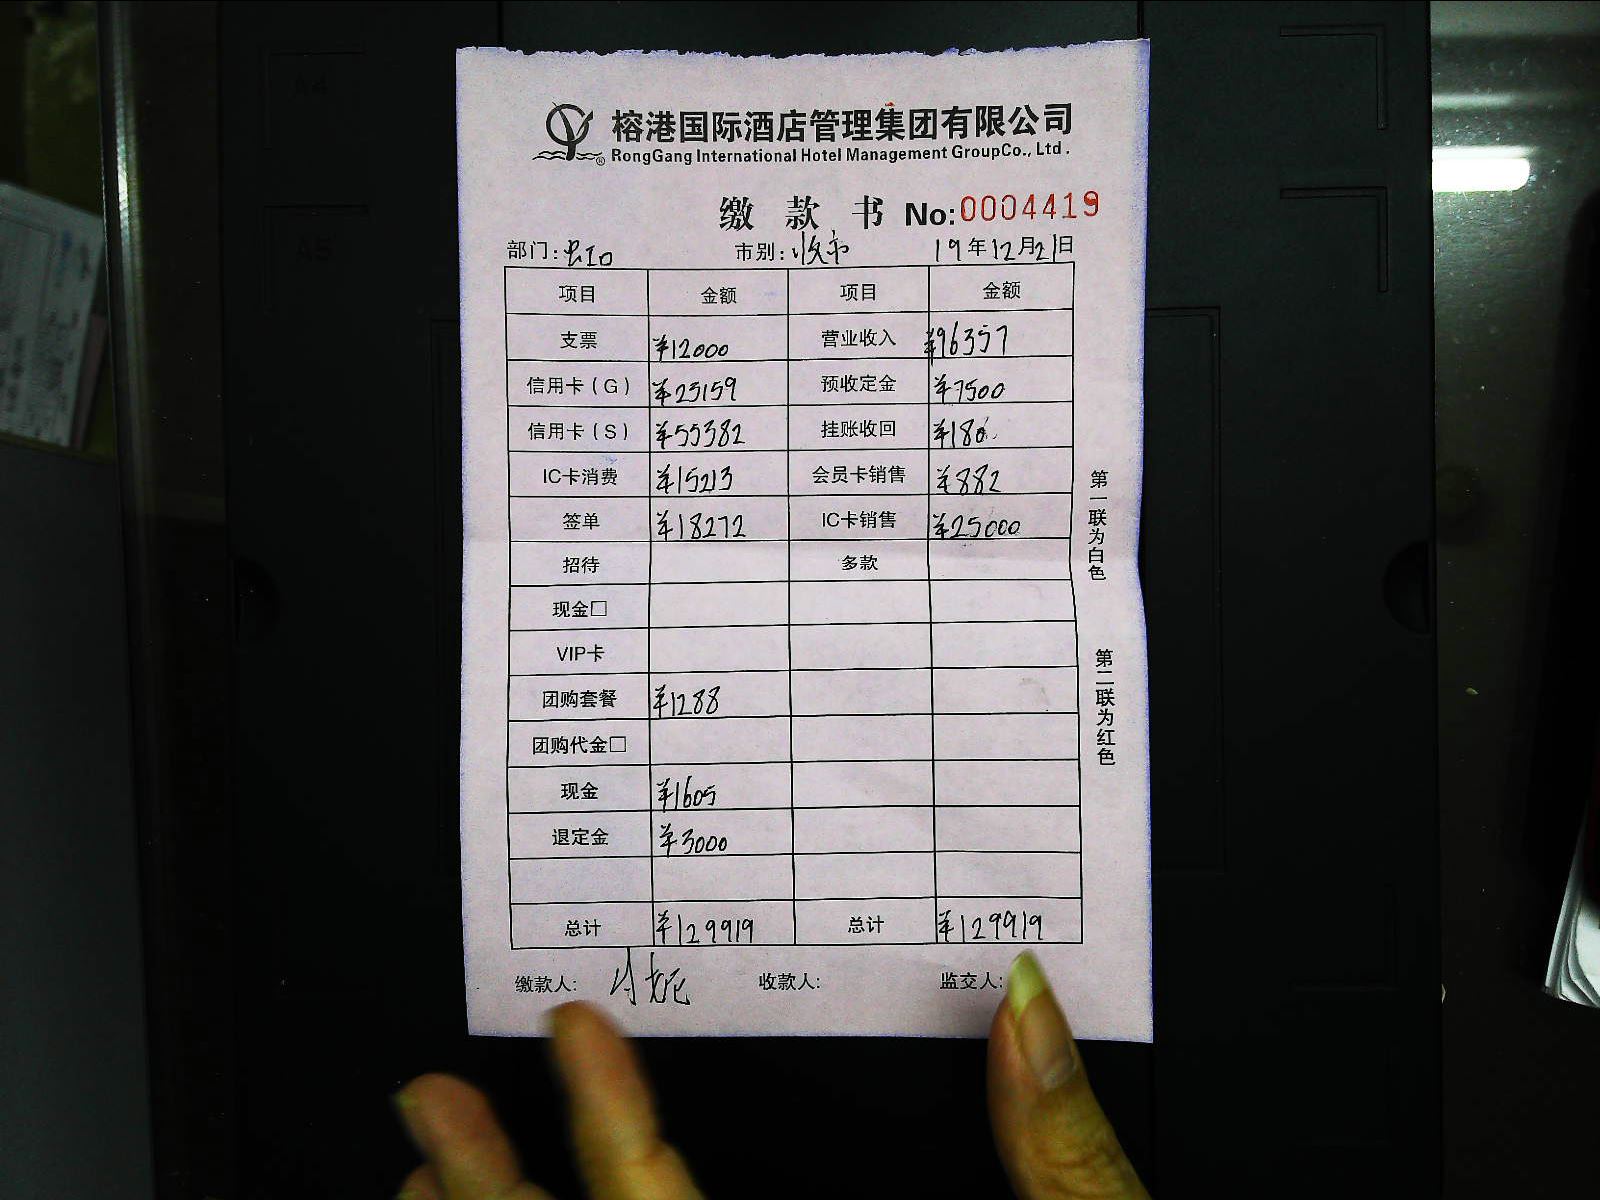 榕港国际酒店管理集团有限公司
RongGang International Hotel Management GroupCo., Ltd .
缴 款 书 No:0004419
部门:虹口 市别:收市 19年12月21日
项目 金额 项目 金额
支票 ¥12000 营业收入 ¥96357
信用卡（G） ¥23159 预收定金 ¥7500
信用卡（S） ¥55382 挂账收回 ¥180
IC卡消费 ¥15213 会员卡销售 ¥882
签单 ¥18272 IC卡销售 ¥25000
招待 多款
现金□
VIP卡
团购套餐 ¥1288
团购代金□
现金 ¥1605
退定金 ¥3000
总计 ¥129919 总计 ¥129919
缴款人: 收款人: 监交人:
第一联为白色
第二联为红色